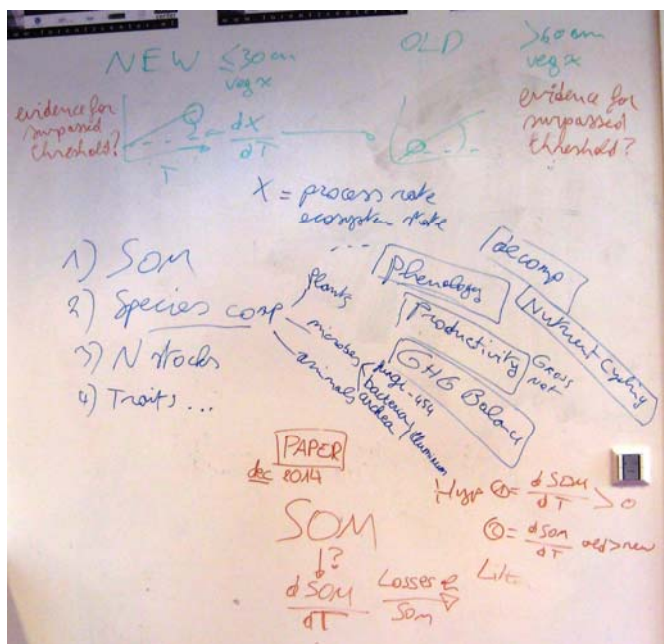 NEW ≤30cm
veg x
OLD >60cm
veg x
evidence for
surpassed
threshold?
dX
dT
T
evidence for
surpassed
threshold?
X = process rate
ecosystem state
...
1) SOM
2) Species comp
3) N stocks
4) Traits...
plants
microbes
animals
fungi - 454
bacteria / Illumina
archea
Phenology
decomp
Productivity
Gross
Net
Nutrient Cycling
GHG Balance
PAPER
dec 2014
SOM
↓?
dSOM
dT
Losses
SOM
Hyp ① = dSOM
dT
> 0
② = dSOM
dT
old > new